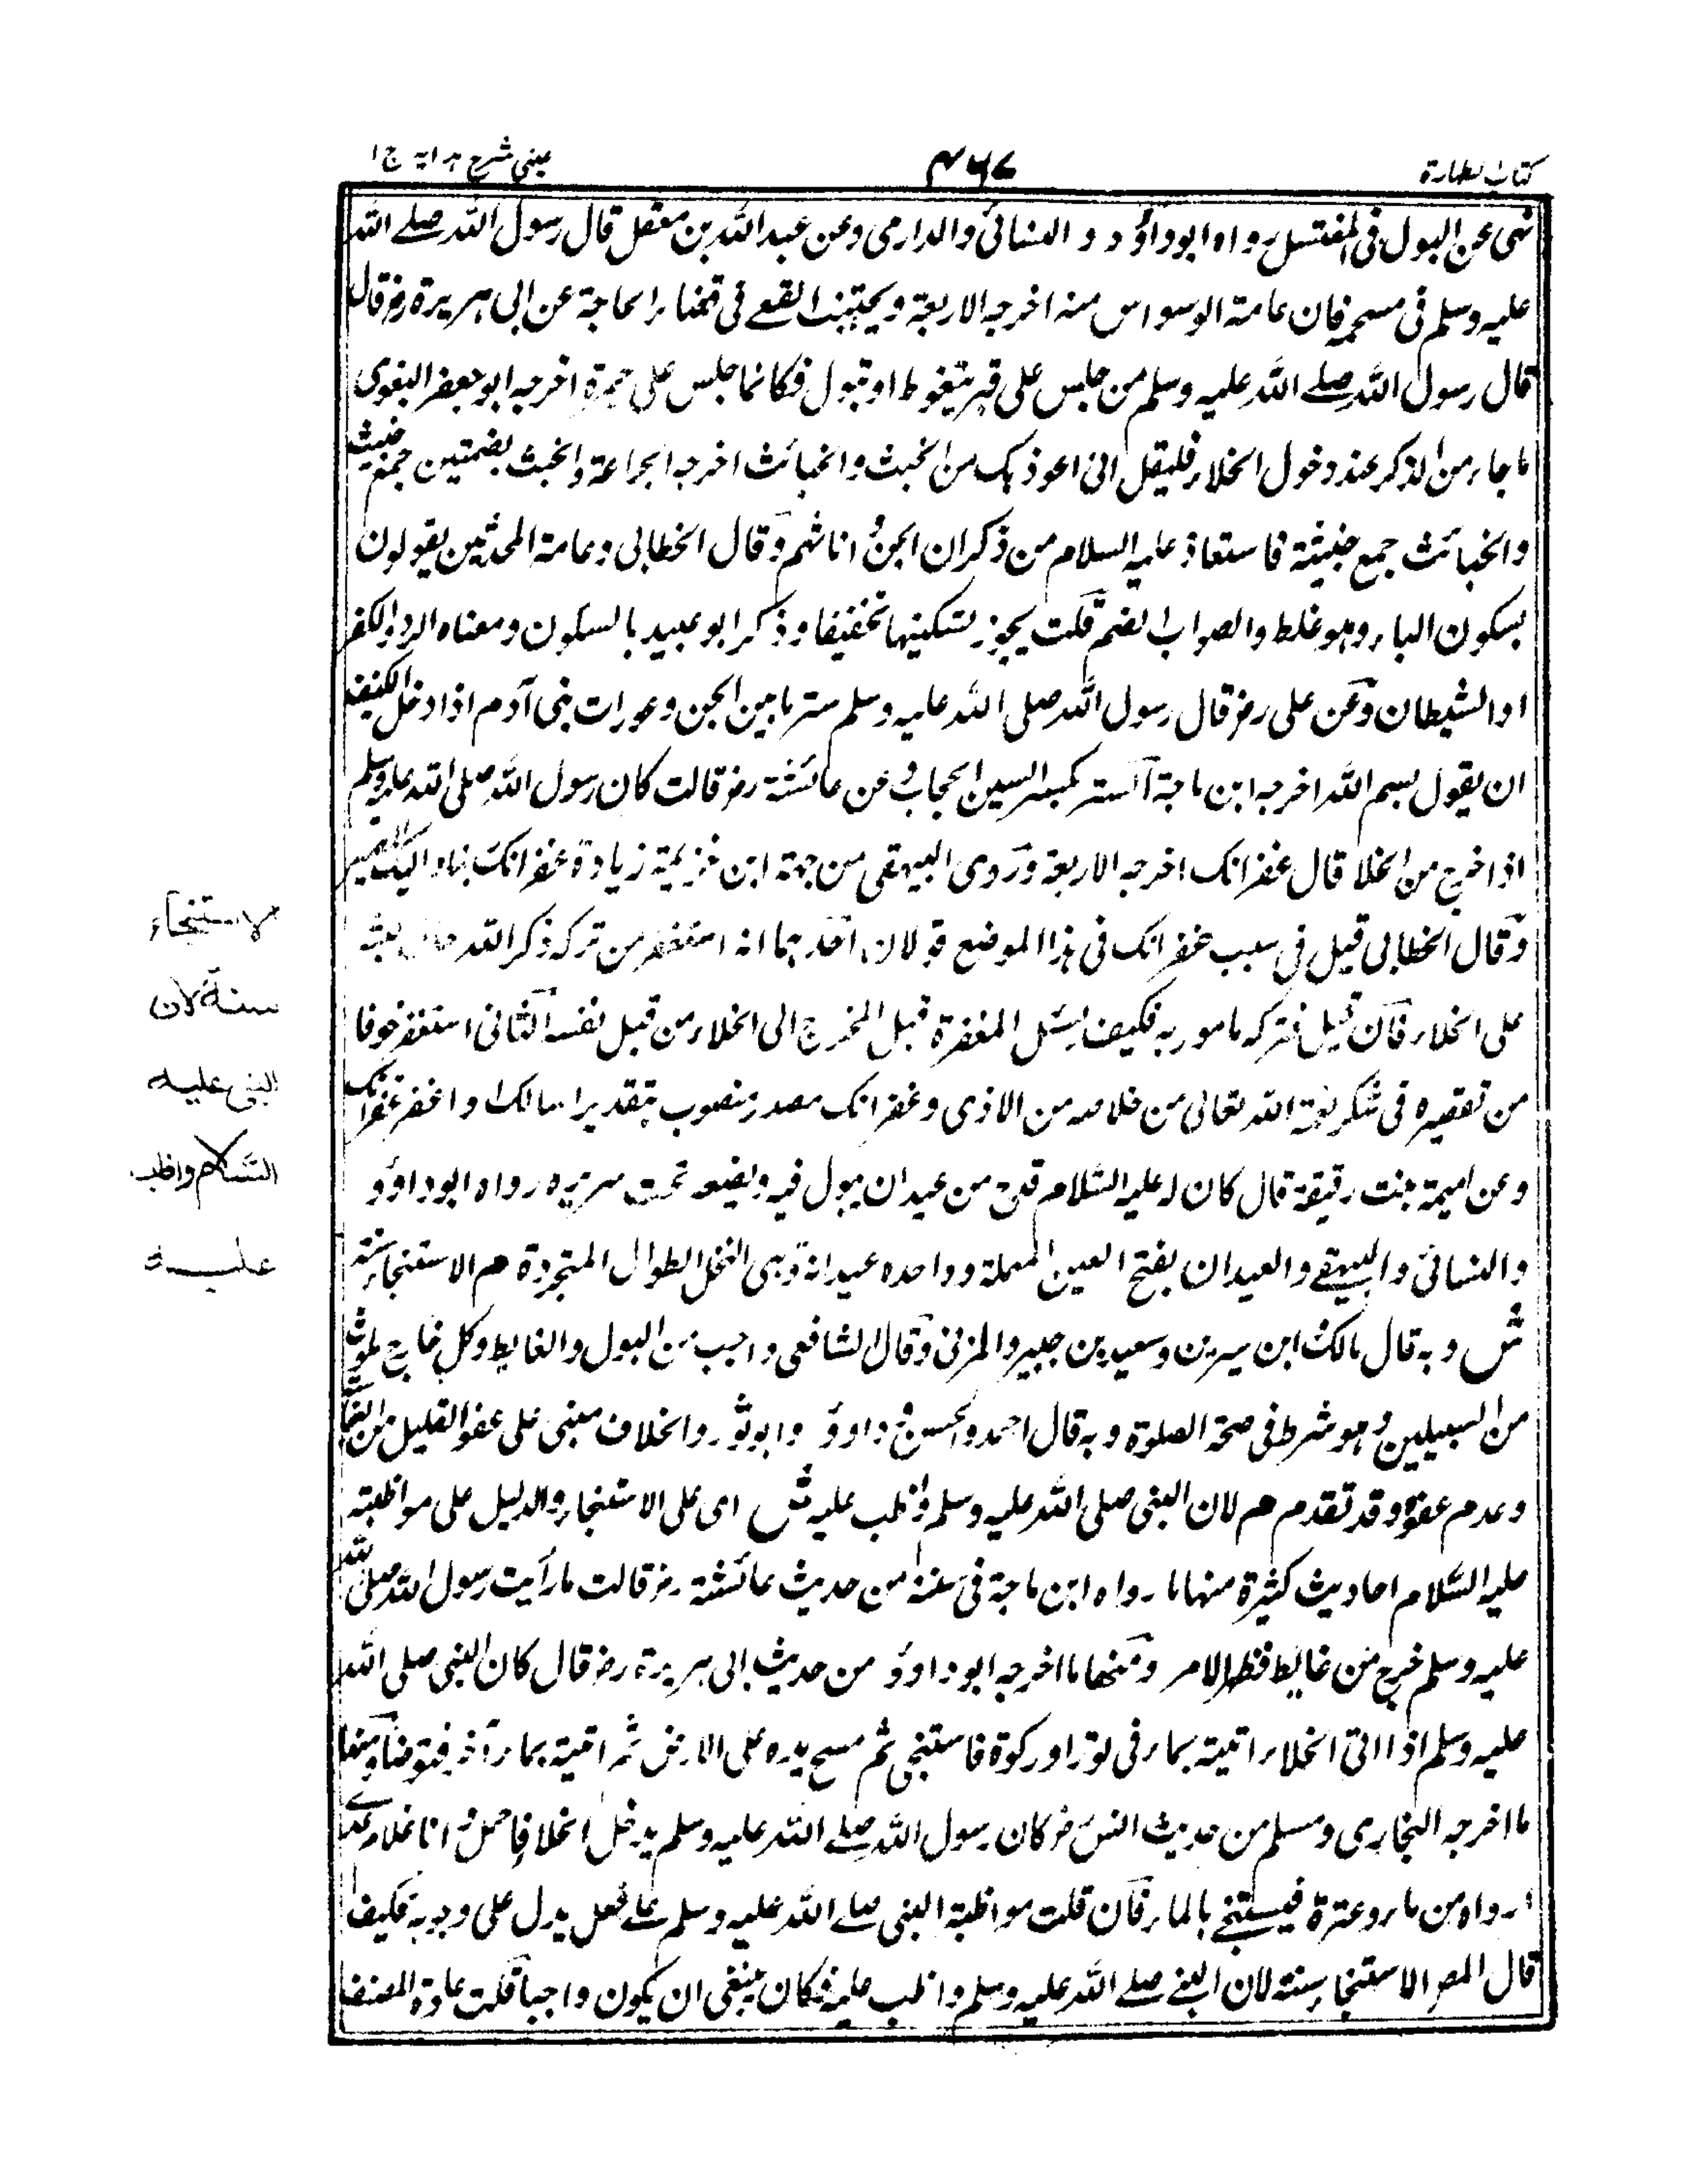 كتاب الطهارة
٤٦٧
عيني شرح هداية ج ١
نهى عن البول فى المغتسل رواه ابوداؤد و النسائى والدارمى وعن عبد الله بن مغفل قال رسول الله صلے الله
عليه وسلم فى مستحمه فان عامة الوسواس منه اخرجه الاربعة ويجتنب القعے فى قضاء الحاجة عن ابى هريرة رض قال
قال رسول الله صلے الله عليه وسلم من جلس على قبر يتغوط او يبول فكانما جلس على جمرة اخرجه ابو جعفر البغوى
ما جاء من الذكر عند دخول الخلاء فليقل انى اعوذ بك من الخبث والخبائث اخرجه الجماعة والخبث بضمتين جمع خبيث
والخبائث جمع خبيثة فاستعاذ عليه السلام من ذكران الجن و اناثهم وقال الخطابى وعامة المحدثين يقولون
بسكون الباء وهو غلط والصواب الضم قلت يجوز تسكينها تخفيفا وذكر ابو عبيد بالسكون ومعناه الرد والكفر
او الشيطان وعن على رض قال رسول الله صلى الله عليه وسلم ستر ما بين الجن وعورات بنى آدم اذا دخل الكنيف
ان يقول بسم الله اخرجه ابن ماجة الستر بكسر السين الحجاب و عن عائشة رض قالت كان رسول الله صلى الله عليه وسلم
اذا خرج من الخلا قال غفرانك اخرجه الاربعة وروى البيهقى من جهة ابن خزيمة زيادة غفرانك ربنا واليك المصير
وقال الخطابى قيل فى سبب غفرانك فى هذا الموضع قولان احدهما انه استغفر من تركه ذكر الله حال لبثه
على الخلاء فان قيل فتركه مامور به فكيف يسئل المغفرة قبل المخرج الى الخلاء من قبل نفسه الثانى استغفر خوفا
من تقصيره فى شكر نعمة الله تعالى من خلاصه من الاذى وغفرانك مصدر منصوب بتقدير اسالك او اغفر غفرانك
وعن اميمة بنت رقيقة قال كان له عليه السلام قدح من عيدان يبول فيه ويضعه تحت سريره رواه ابو داوؤد
والنسائى والبيهقے والعيدان بفتح العين المهملة وواحده عيدانة وهى النخل الطوال المتجردة م الاستنجاء سنة
ش وبه قال مالك و ابن سيرين وسعيد بن جبير والمزنى وقال الشافعى واجب من البول والغايط وكل خارج ملوث
من السبيلين و هو شرط فى صحة الصلوة وبه قال احمد والحسن و داوؤد وابو ثور والخلاف مبنى على عفو القليل من النجاسة
وعدم عفوه وقد تقدم م لان النبى صلى الله عليه وسلم واظب عليه ش اى على الاستنجاء والدليل على مواظبته
عليه السلام احاديث كثيرة منها ما رواه ابن ماجة فى سننه من حديث عائشة رض قالت ما رأيت رسول الله صلى الله
عليه وسلم خرج من غايط قط الا مر ومنها ما اخرجه ابو داوؤد من حديث ابى هريرة رض قال كان النبى صلى الله
عليه وسلم اذا اتى الخلاء اتيته بماء فى تور او ركوة فاستنجى ثم مسح يده على الارض ثم اتيته بماء آخر فيتوضأ ومنها
ما اخرجه البخارى ومسلم من حديث انس رض كان رسول الله صلے الله عليه وسلم يدخل الخلا فاحمل و انا غلام معے
اداوة من ماء وعنزة فيستنجے بالماء فان قلت مواظبة النبى صلے الله عليه وسلم علے فعل يدل على وجوبه فكيف
قال المص الاستنجاء سنة لان النبے صلے الله عليه وسلم واظب عليه فكان ينبغى ان يكون واجبا قلت عادة المصنف
الاستنجاء
سنة لان
النبى عليه
السلام واظب
عليه